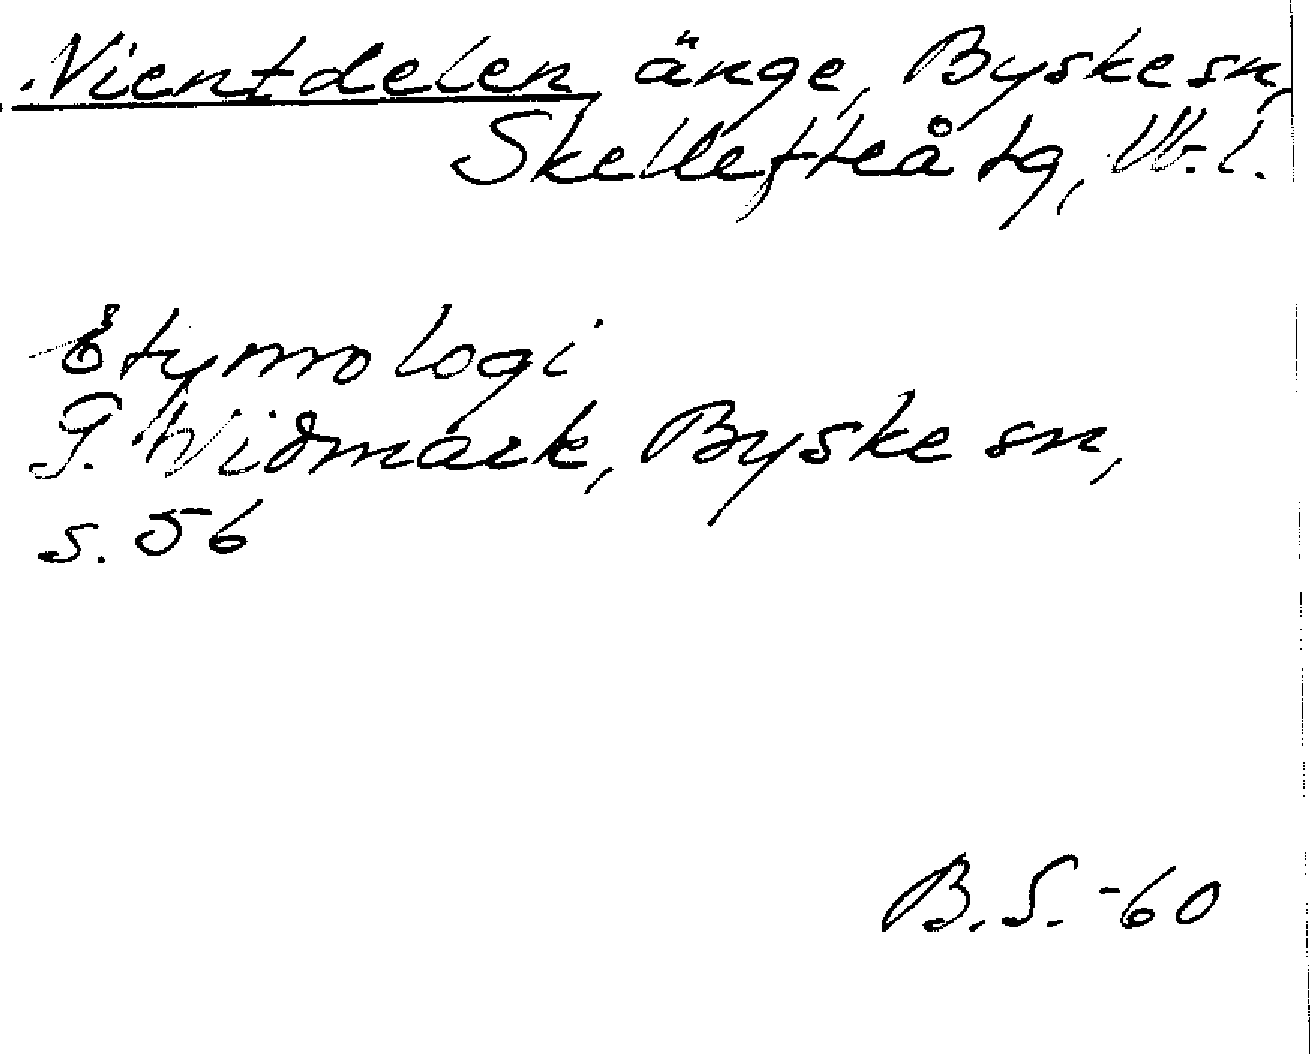 Nientdelen, änge, Byske sn,
Skellefteå tg, Vb. l.
Etymologi
G. Widmark, Byske sn,
s. 56
B.S. -60